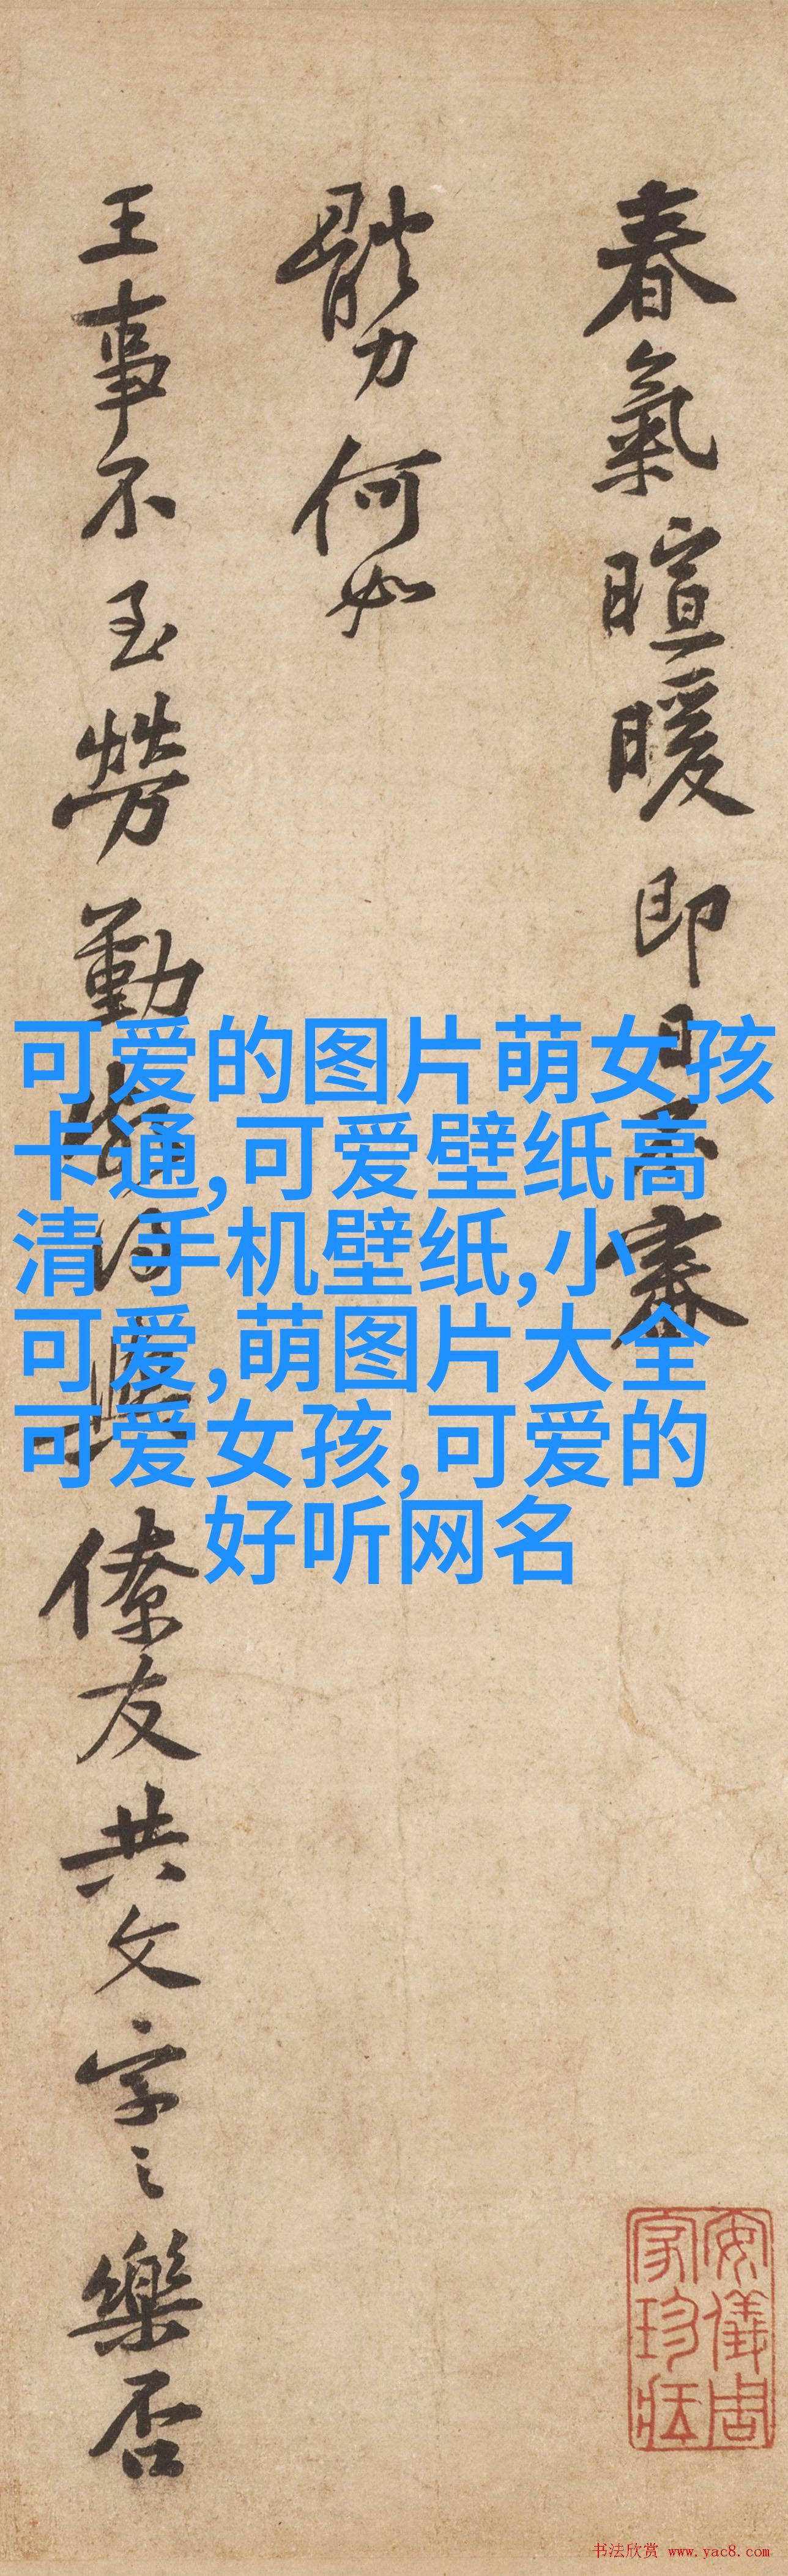 春氣暄暖即日不審
體力何如
王事不至勞勤
僚友共文字之樂否
可爱的图片萌女孩
卡通,可爱壁纸高
清 手机壁纸,小
可爱,萌图片大全
可爱女孩,可爱的
好听网名
安儀周
家珍藏
书法欣赏 www.yac8.com